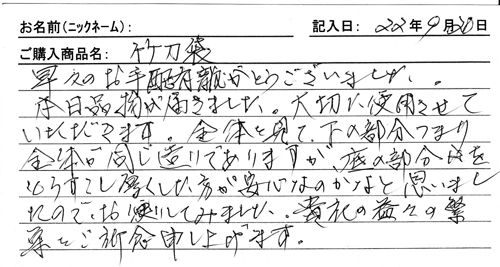 お名前(ニックネーム): 記入日: 22年9月20日
ご購入商品名: 竹刀袋
早々のお手配有難がとうございました。
本日品物が届きました。大切に使用させて
いただきます。全体を見て、下の部分つまり
全体が同じ造りでありますが、底の部分を
もうすこし厚くした方が安心なのかなと思いまし
たので、お便りしてみました。貴社の益々の繁
栄をご祈念申し上げます。